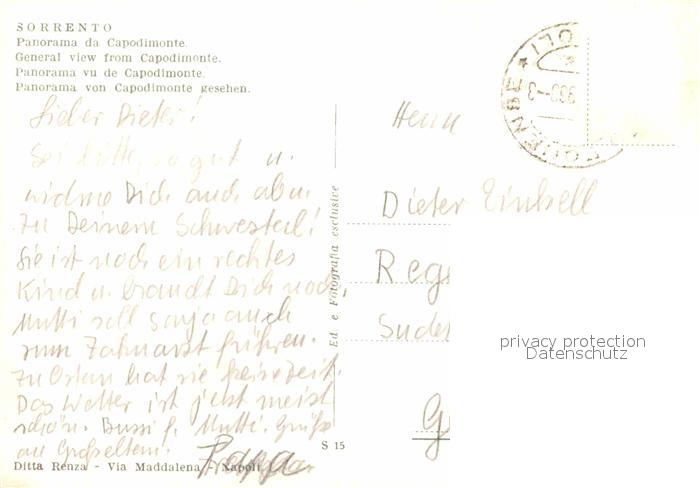 SORRENTO
Panorama da Capodimonte.
General view from Capodimonte.
Panorama vu de Capodimonte.
Panorama von Capodimonte gesehen.
Lieber Dieter!
Sei bitte so gut u.
widme Dich auch aber
zu Deinem Schwesterl!
Sie ist noch ein rechtes
Kind u. braucht Dich noch,
Mutti soll Sonja auch
zum Zahnarzt führen.
Zu Ostern hat sie keine Zeit.
Das Wetter ist jetzt meist
schön. Bussi f. Mutti. Grüße
an Großeltern.
Papa
Ditta Renza - Via Maddalena - Napoli
S 15
Ed. e Fotografia esclusive
Herrn
Dieter
Reg
Sude
G
privacy protection
Datenschutz